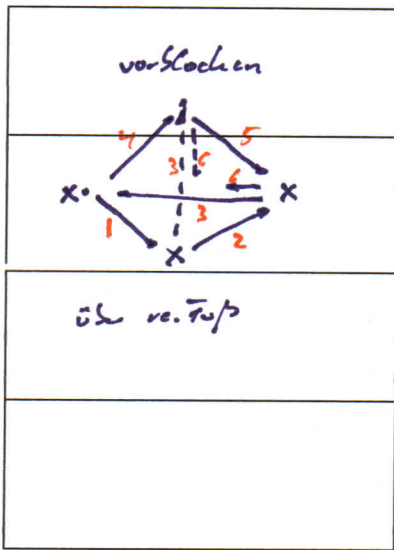 vorblocken
4 5
3 6
6
x x
3
1 2
x
über re. Fuß